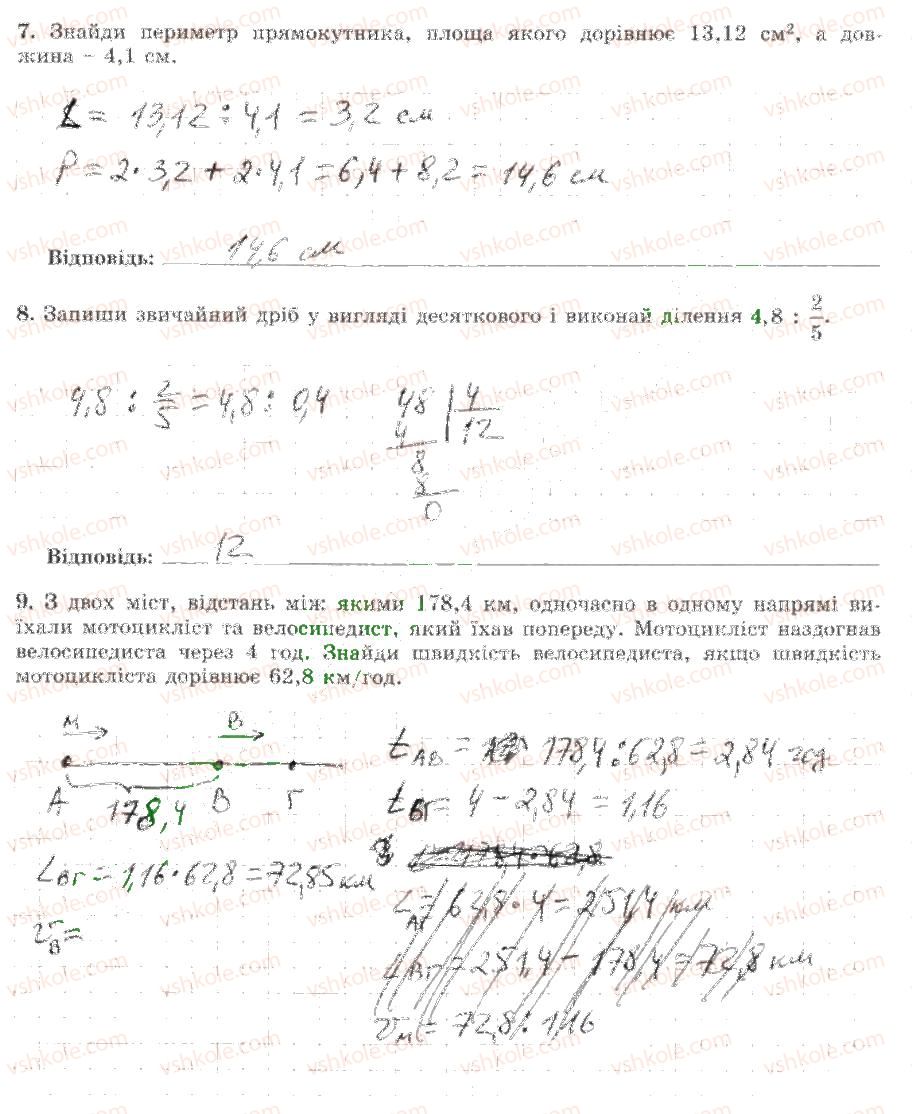 7. Знайди периметр прямокутника, площа якого дорівнює 13,12 см², а дов-
жина – 4,1 см.
L = 13,12 : 4,1 = 3,2 см
P = 2 · 3,2 + 2 · 4,1 = 6,4 + 8,2 = 14,6 см
Відповідь: 14,6 см
8. Запиши звичайний дріб у вигляді десяткового і виконай ділення 4,8 : 2/5.
4,8 : 2/5 = 4,8 : 0,4
48 | 4
4 | 12
8
8
0
Відповідь: 12
9. З двох міст, відстань між якими 178,4 км, одночасно в одному напрямі ви-
їхали мотоцикліст та велосипедист, який їхав попереду. Мотоцикліст наздогнав
велосипедиста через 4 год. Знайди швидкість велосипедиста, якщо швидкість
мотоцикліста дорівнює 62,8 км/год.
М В
А В Г
178,4
t АВ = 178,4 : 62,8 = 2,84 год
t ВГ = 4 – 2,84 = 1,16
L ВГ = 1,16 · 62,8 = 72,85 км
v В =
L АГ = 62,8 · 4 = 251,4 км
L ВГ = 251,4 – 178,4 = 72,8 км
v м = 72,8 : 1,16